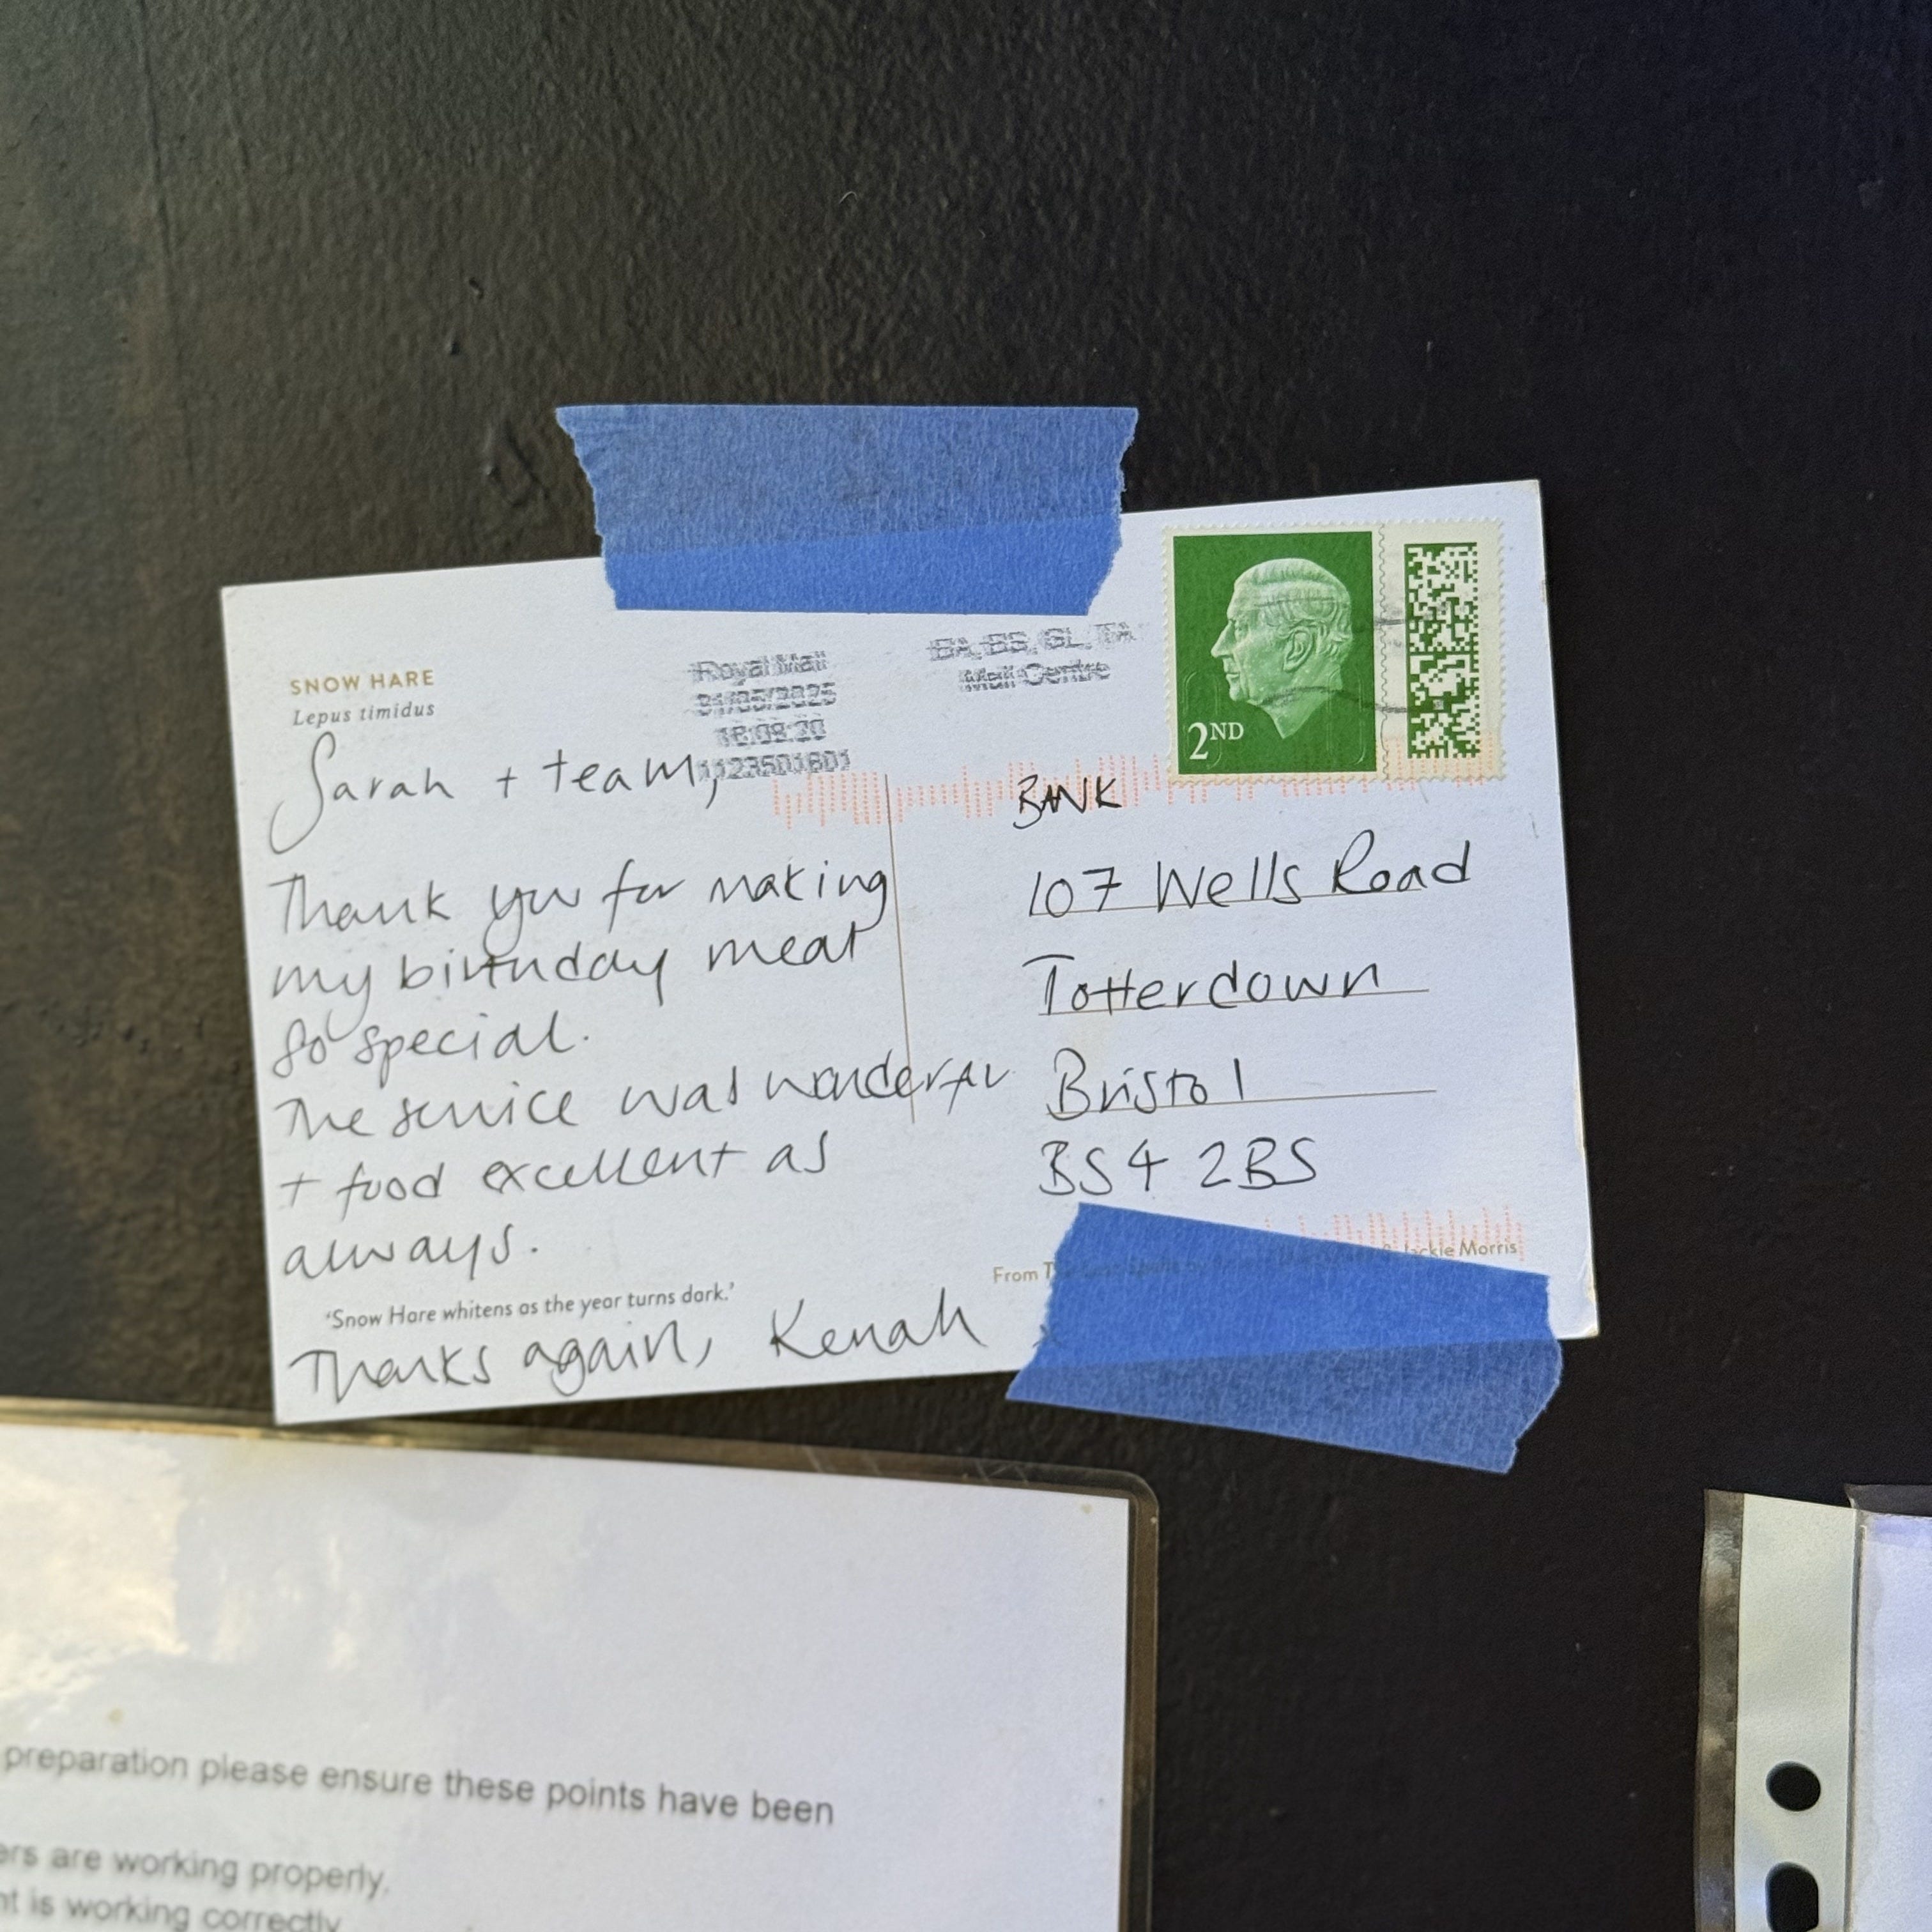 SNOW HARE
Lepus timidus
Royal Mail
31/05/2025
BA, BS, GL, TA
Mail Centre
2ND
Sarah + team,
Thank you for making
my birthday meal
so special.
The service was wonderful
+ food excellent as
always.
'Snow Hare whitens as the year turns dark.'
Thanks again, Kenah x
BANK
107 Wells Road
Totterdown
Bristol
BS4 2BS
From T
Jackie Morris
preparation please ensure these points have been
are working properly.
is working correctly